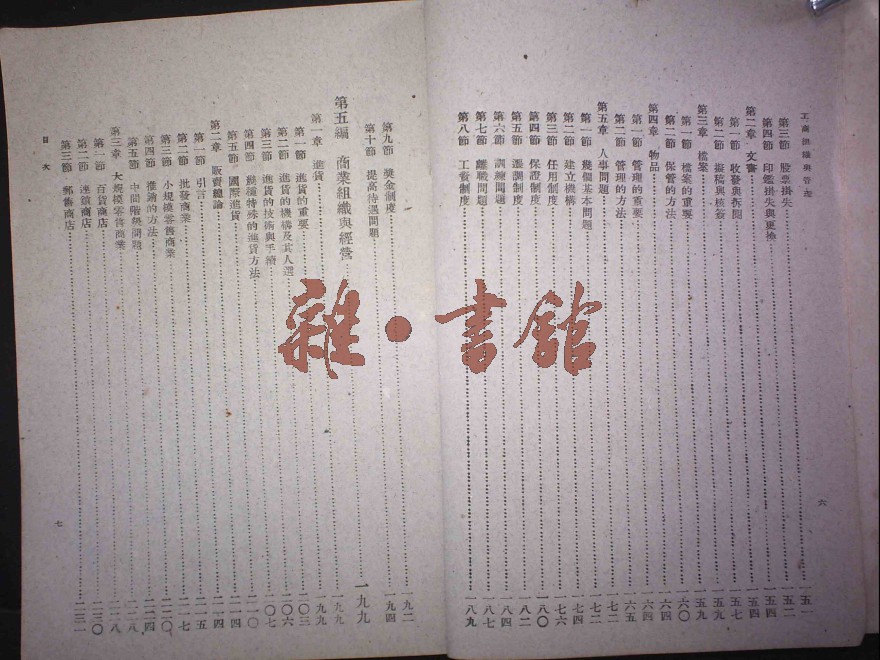 工商組織與管理
第三節 股票掛失 一五一
第四節 印鑑掛失與更換 一五二
第二章 文書 一五四
第一節 收發與拆閱 一五四
第二節 擬稿與核簽 一五七
第三章 檔案 一五九
第一節 檔案的重要 一五九
第二節 保管的方法 一六〇
第四章 物品 一六四
第一節 管理的重要 一六四
第二節 管理的方法 一六五
第五章 人事問題 一七二
第一節 幾個基本問題 一七二
第二節 建立機構 一七四
第三節 任用制度 一七六
第四節 保證制度 一八〇
第五節 遷調制度 一八二
第六節 訓練問題 一八四
第七節 離職問題 一八七
第八節 工資制度 一八九
六
第九節 獎金制度 一九二
第十節 提高待遇問題 一九四
第五編 商業組織與經營 一九九
第一章 進貨 一九九
第一節 進貨的重要 一九九
第二節 進貨的機構及其人選 二〇三
第三節 進貨的技術與手續 二〇六
第四節 幾種特殊的進貨方法 二〇七
第五節 國際進貨 二一〇
第二章 販賣總論 二一四
第一節 引言 二一四
第二節 批發商業 二一五
第三節 小規模零售商業 二一七
第四節 推銷的方法 二二〇
第五節 中間階級問題 二二四
第三章 大規模零售商業 二二八
第一節 百貨商店 二二八
第二節 連鎖商店 二三〇
第三節 郵售商店 二三一
目次
七
雜·書館